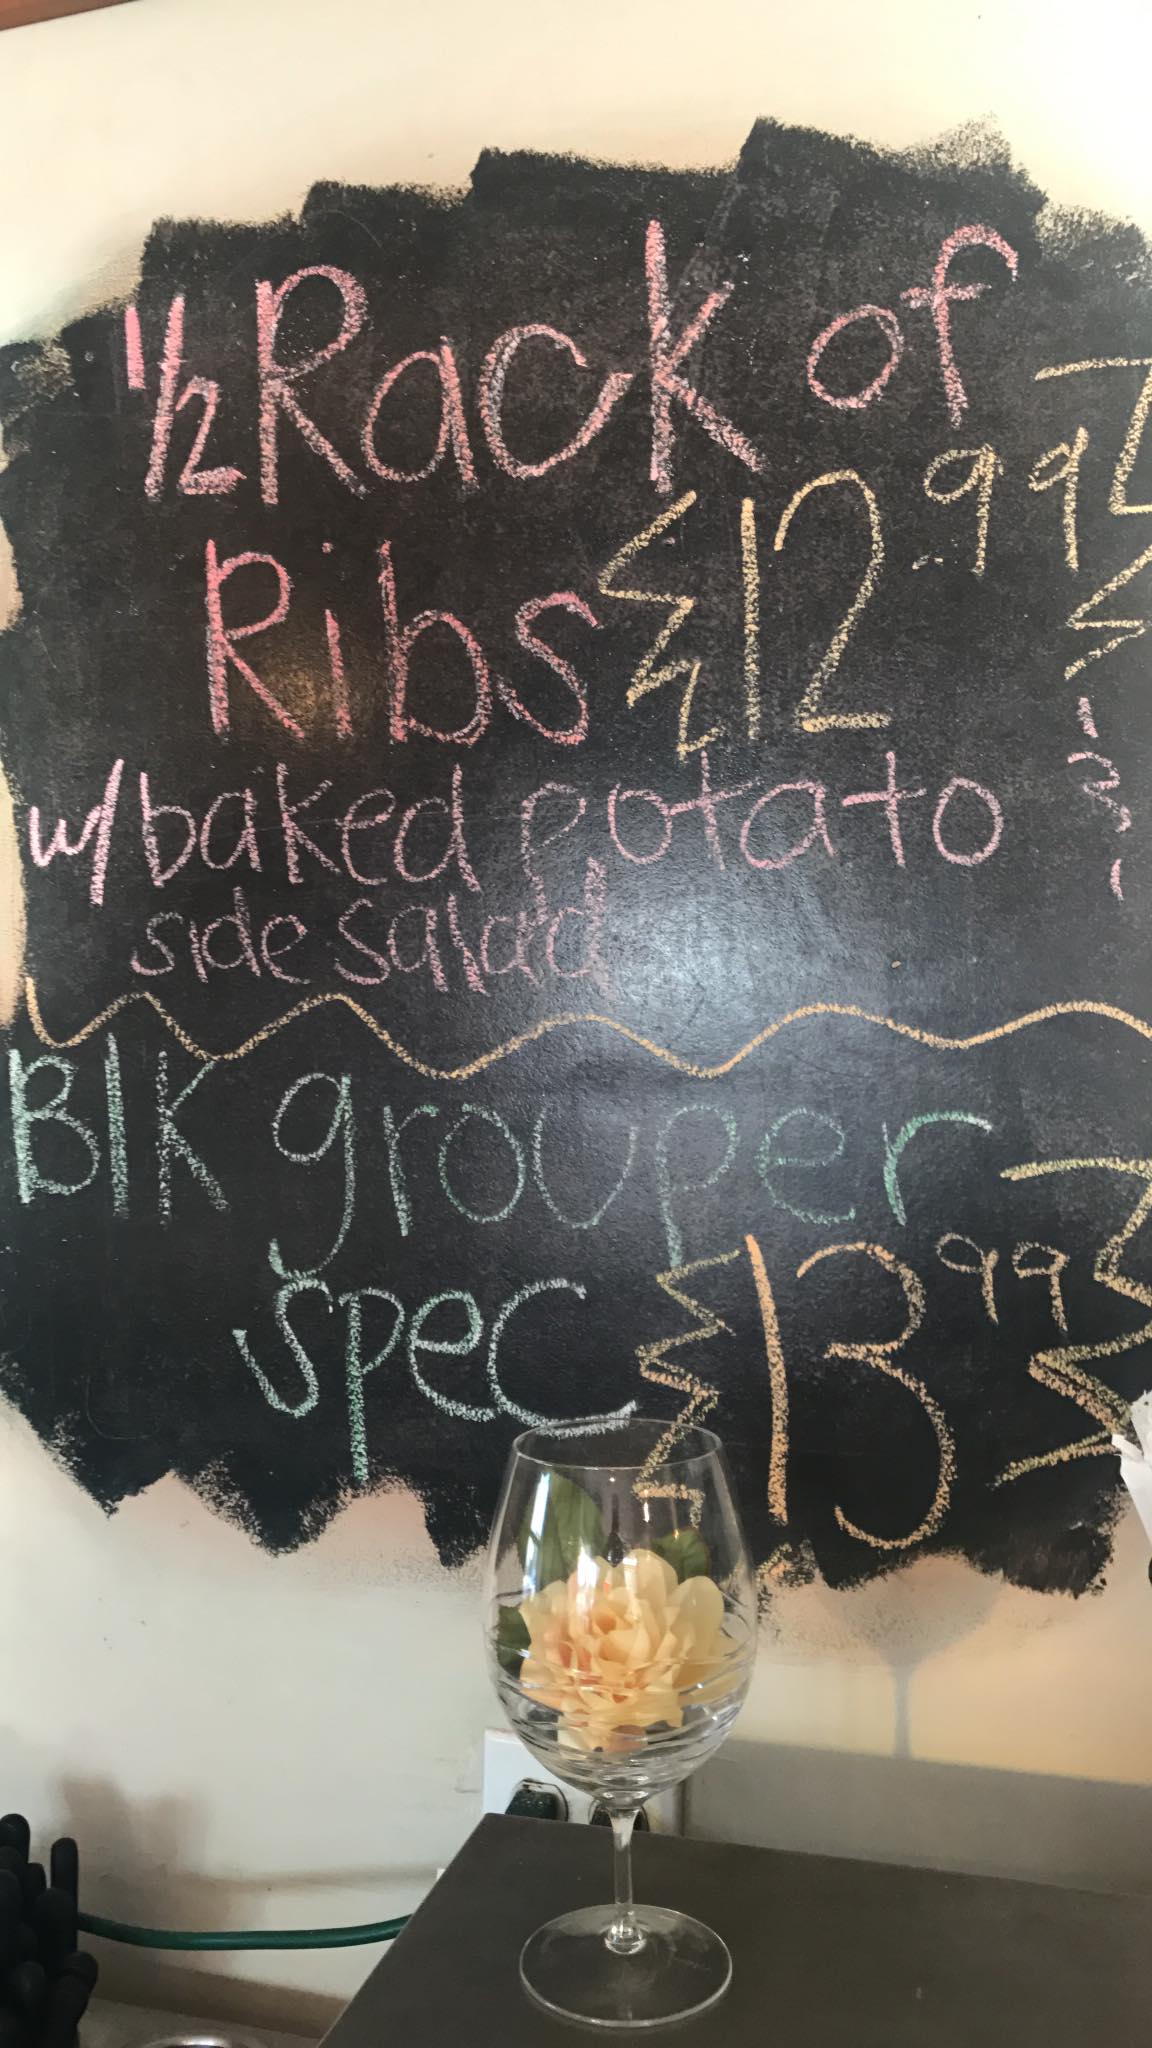 1/2 Rack of
Ribs 12.99
w/ baked potato &
side salad
Blk grouper
spec 13.99